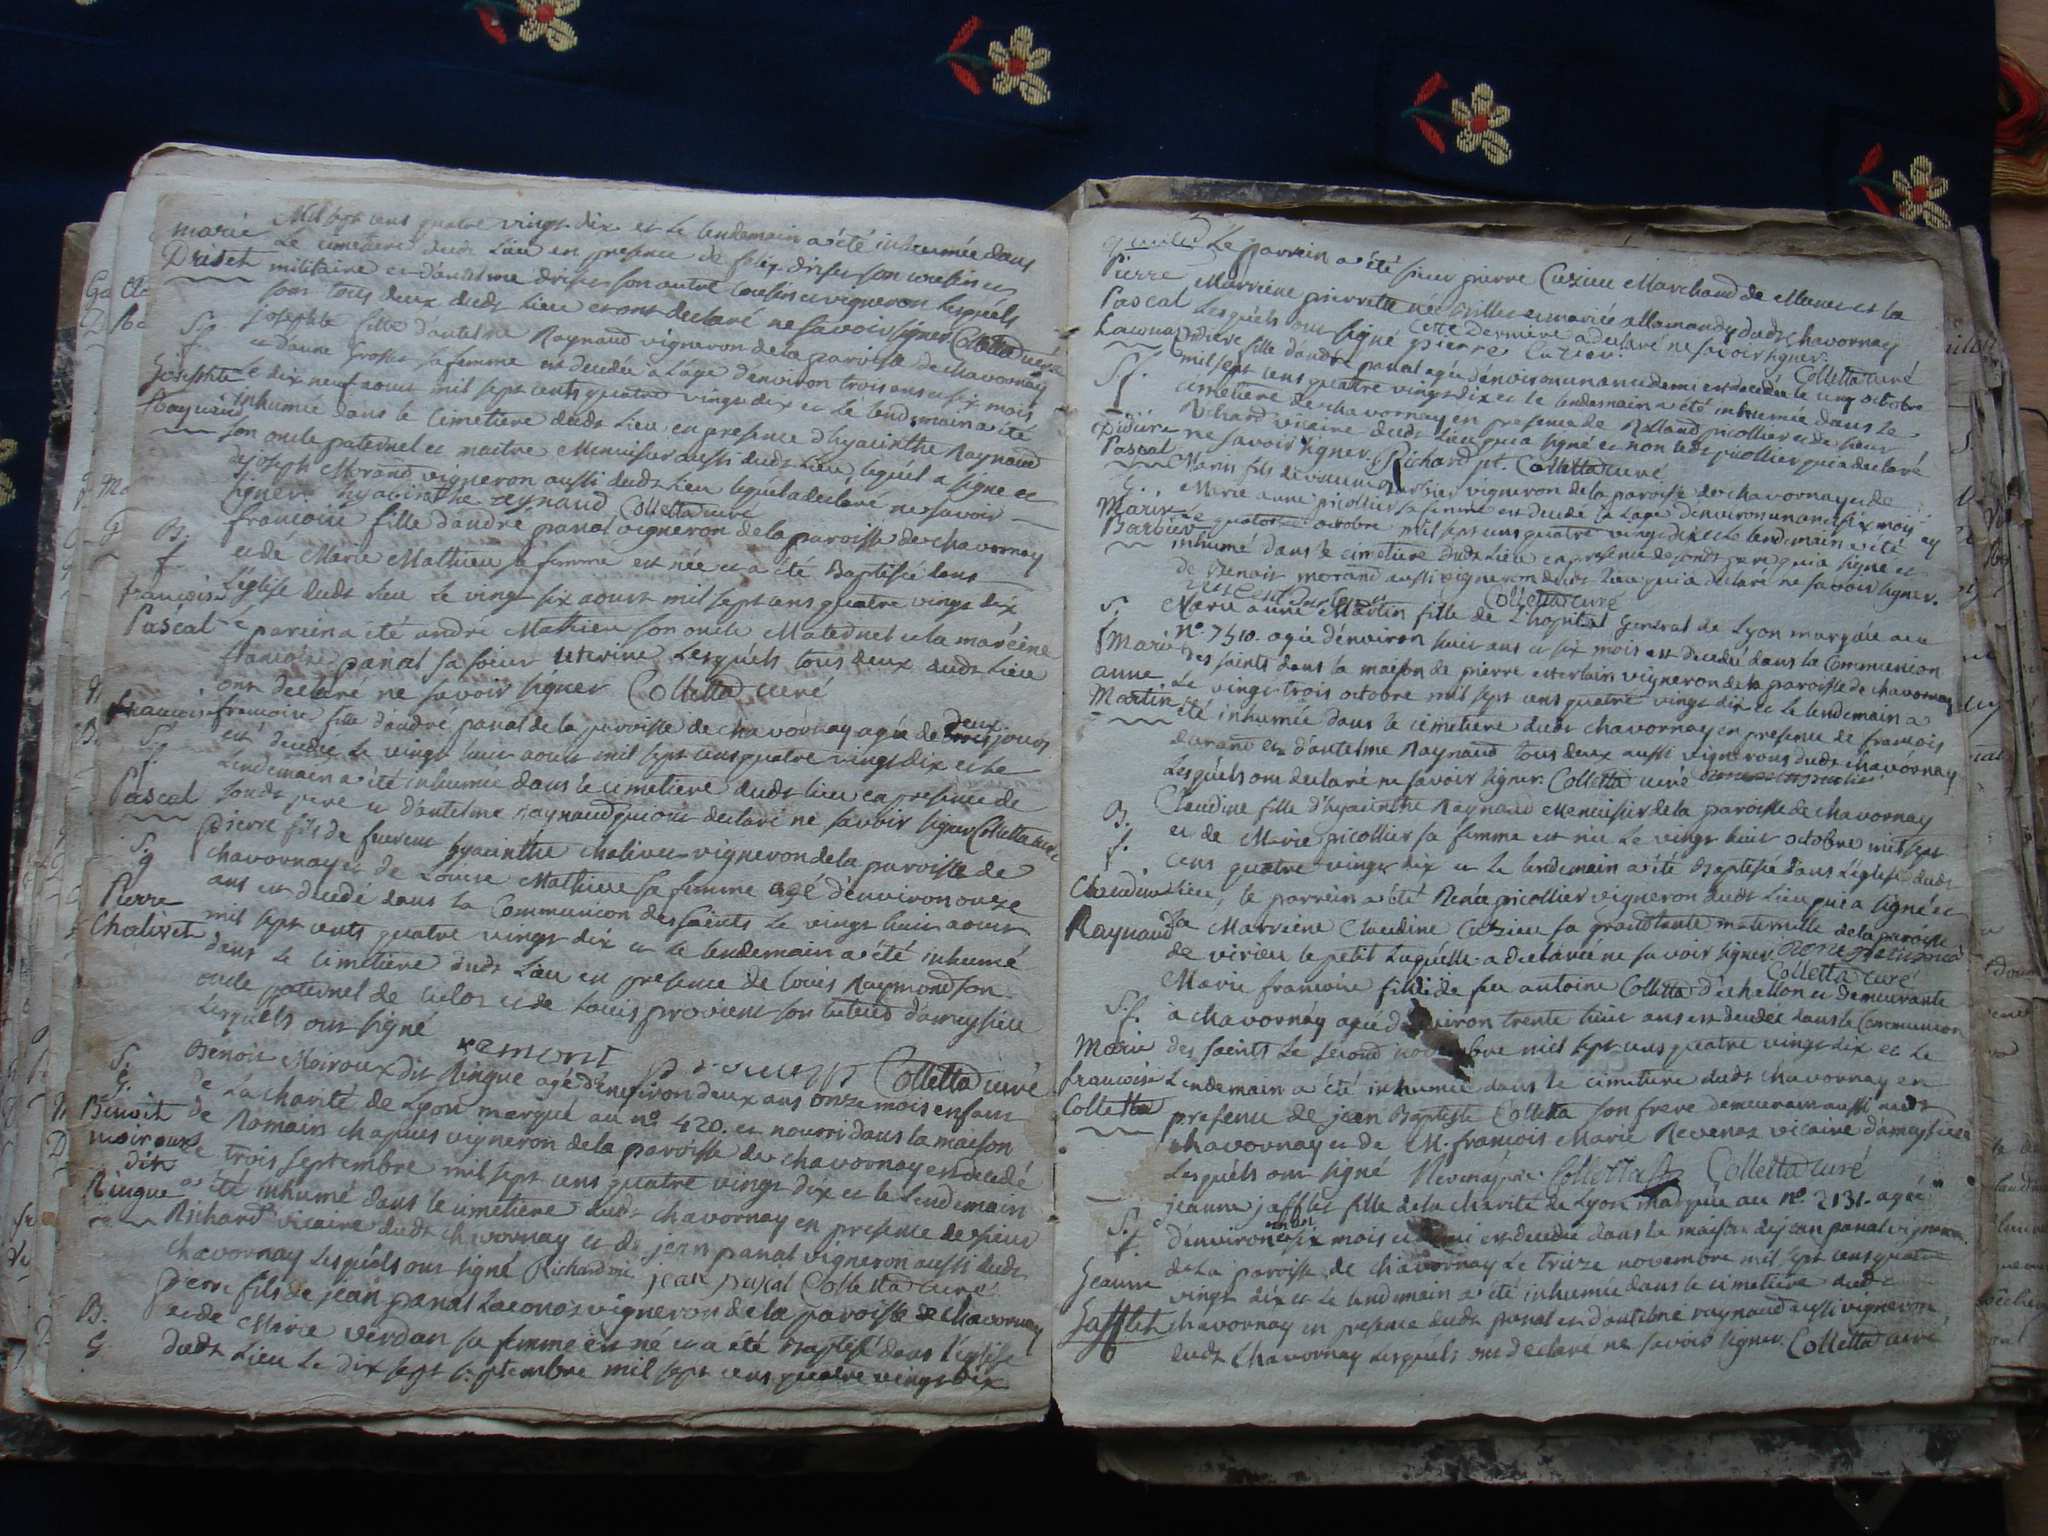 Mil sept cens quatre vingt dix et le lendemain a été inhumée dans
marie le cimetiere dudt Lieu en presence de felix driset son cousin
Driset militaire et d'antelme driset son autre cousin vigneron Lesquels
sont tous deux dudt Lieu et ont declaré ne savoir signer Colletta curé
S. josephte fille d'antelme Raynaud vigneron de la paroisse de chavornay
f. et d'anne sa femme est decedée a L'age d'environ trois ans et six mois
Josephte Le dix neuf aout mil sept cents quatre vingt dix et le lendemain a été
Raynaud inhumée dans le cimetiere dudt Lieu en presence d'hyacinthe Raynaud
son oncle paternel et maitre Menuisier aussi dudt Lieu, lequel a signé et
de joseph Morand vigneron aussi dudt Lieu lequel a declaré ne savoir
signer. hyacinthe reynaud Colletta curé
B. francoise fille d'andré panal vigneron de la paroisse de chavornay
f. et de Marie Mathieu sa femme est née et a été Baptisée dans
francoise L'église dudt Lieu Le vingt six aoust mil sept cens quatre vingt dix
Pascal Le parein a été andré Mathieu son oncle Maternel et la mareine
francoise panal sa soeur uterine Lesquels tous deux dudt Lieu
ont declaré ne savoir signer Colletta curé
francoise francoise fille d'andré panal de la paroisse de chavornay agée de deux jours
S. est decedée Le vingt huit aoust mil sept cens quatre vingt dix et le
f. Lendemain a été inhumée dans le cimetiere dudt Lieu en presence de
Pascal sondt pere et d'antelme raynaud qui ont declaré ne savoir signer Colletta curé
S. Pierre fils de hyacinthe chalivet vigneron de la paroisse de
g chavornay et de Louise Mathieu sa femme agé d'environ onze
Pierre ans est decedé dans la Communion des saints Le vingt huit aoust
Chalivet mil sept cents quatre vingt dix et le lendemain a été inhumé
dans Le cimetiere dudt Lieu en presence de Louis Raymond son
oncle paternel de culoz et de Louis provient son tuteur d'ameysieu
Lesquels ont signé
remont Colletta curé
S. Benoit Moiroux dit Ringue agé d'environ deux ans onze mois enfant
G. de La charité de Lyon marqué au n° 420. et nourri dans la maison
Benoit de Romain chapuis vigneron de la paroisse de chavornay est decedé
moiroux Le trois septembre mil sept cens quatre vingt dix et le lendemain
dit a été inhumé dans le cimetiere dudt chavornay en presence de sieur
Ringue Richard vicaire dudt chavornay et de jean panal vigneron aussi dudt
chavornay Lesquels ont signé Richard vic. jean pascal Colletta curé
B. pierre fils de jean panal Laconaz vigneron de la paroisse de chavornay
G et de Marie verdan sa femme est né et a été Baptisé dans l'église
dudt Lieu Le dix sept septembre mil sept cens quatre vingt dix
Le parrein a été sieur pierre Cuzieu Marchand de et la
Pierre Marriene pierrette née mariée allamand dudt chavornay
Pascal Lesquels ont signé Cette Derniere a declaré ne savoir signer.
Laconaz pierre Cuzieu. Colletta curé
fille d'andré panal agée d'environ un an et demi est decedée le cinq octobre
S. mil sept cens quatre vingt dix et le lendemain a été inhumée dans le
f. cimetiere de chavornay en presence de Rolland picollier et de sieur
Didiere Richard vicaire dudt Lieu qui a signé et non ledt picollier qui a declaré
Pascal ne savoir signer. Richard pt. Colletta curé
G. Marin fils de barbier vigneron de la paroisse de chavornay et de
Marin Marie anne picollier sa femme est decedé a L'age d'environ un an et six mois
Barbier Le quatorze octobre mil sept cens quatre vingt dix et le lendemain a été
inhumé dans le cimetiere dudt Lieu en presence de sondt pere qui a signé et
de Benoit morand aussi vigneron dudt lieu qui a declaré ne savoir signer.
Colletta curé
S. Marie anne Martin fille de L'hopital General de Lyon marquée au
f n° 7510. agée d'environ huit ans et six mois est decedée dans la Communion
Marie des saints dans la maison de pierre vigneron de la paroisse de chavornay
anne Le vingt trois octobre mil sept cens quatre vingt dix et le lendemain a
Martin été inhumée dans le cimetiere dudt chavornay en presence de francois
durand et d'antelme Raynaud tous deux aussi vignerons dudt chavornay
Lesquels ont declaré ne savoir signer. Colletta curé
B. Claudine fille d'hyacinthe Raynaud Menuisier de la paroisse de chavornay
f. et de Marie picollier sa femme est née Le vingt huit octobre mil sept
cens quatre vingt dix et le lendemain a été Baptisée dans L'église dudt
Claudine Lieu, le parrein a été Renée picollier vigneron dudt Lieu qui a signé et
Raynaud La Marriene Claudine Cuzieu sa grande tante maternelle de la paroisse
de virieu le petit Laquelle a declarée ne savoir signer.
Colletta curé
S.f. Marie francoise fille de feu antoine Colletta d'échallon et demeurante
à chavornay agée d'environ trente huit ans est decedée dans la Communion
Marie des saints Le second novembre mil sept cens quatre vingt dix et Le
francoise Lendemain a été inhumée dans le cimetiere dudt chavornay en
Colletta presence de jean Baptiste Colletta son frere demeurant aussi audt
chavornay et de M. francois Marie Revenaz vicaire d'ameysieu
Lesquels ont signé Colletta Colletta curé
jeanne jafflet fille de la charité de Lyon marquée au n° 2131. agée
S. d'environ six mois et demi est decedée dans la maison de jean panal vigneron
f. de La paroisse de chavornay Le treize novembre mil sept cens quatre
Jeanne vingt dix et Le lendemain a été inhumée dans le cimetiere dudt
Jafflet chavornay en presence dudt panal et d'antelme raynaud aussi vigneron
dudt Chavornay Lesquels ont declaré ne savoir signer. Colletta curé